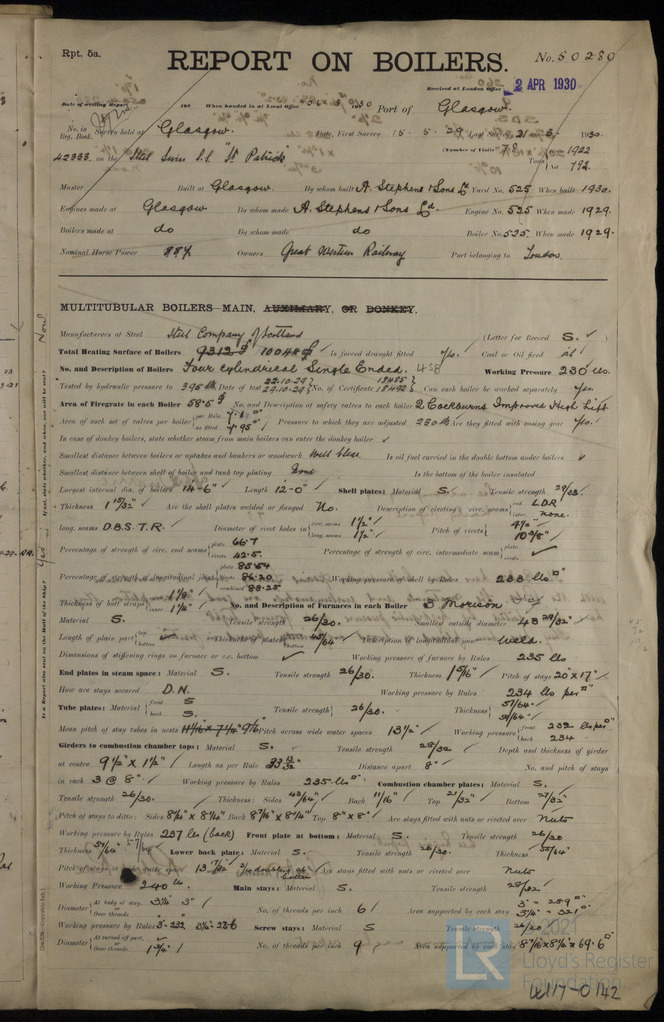 Rpt. 5a.
REPORT ON BOILERS.
No. 50280
Received at London Office 2 APR 1930
Date of writing Report 19 When handed in at Local Office 26.3.1930 Port of Glasgow.
No. in Reg. Book. Survey held at Glasgow. Date, First Survey 15-5-29 Last Survey 21-3-1930.
42333. on the Steel Twin S.S. "St Patrick" (Number of Visits 78 Gross 1922 Tons Net 792.
Master Built at Glasgow. By whom built A. Stephens & Sons Ld Yard No. 525 When built 1930.
Engines made at Glasgow By whom made A. Stephens & Sons Ld. Engine No. 525 When made 1929.
Boilers made at do By whom made do Boiler No. 525 When made 1929.
Nominal Horse Power Owners Great Western Railway Port belonging to London.
MULTITUBULAR BOILERS—MAIN, AUXILIARY, OR DONKEY.
Manufacturers of Steel Steel Company of Scotland (Letter for Record S.
Total Heating Surface of Boilers Is forced draught fitted yes. Coal or Oil fired oil
No. and Description of Boilers Four cylindrical Single Ended. 4SB Working Pressure 230 lbs.
Tested by hydraulic pressure to 395 lb Date of test 22.10.29 29.10.29 No. of Certificate 18485 18492 Can each boiler be worked separately yes
Area of Firegrate in each Boiler 58.5 No. and Description of safety valves to each boiler 2 Cockburns Improved High Lift
Area of each set of valves per boiler per Rule as fitted Pressure to which they are adjusted 230 lb Are they fitted with easing gear yes.
In case of donkey boilers, state whether steam from main boilers can enter the donkey boiler
Smallest distance between boilers or uptakes and bunkers or woodwork Well clear Is oil fuel carried in the double bottom under boilers
Smallest distance between shell of boiler and tank top plating Is the bottom of the boiler insulated
Largest internal dia. of boilers 14-6" Length 12-0" Shell plates: Material S. Tensile strength 29/33.
Thickness 1 15/32" Are the shell plates welded or flanged No. Description of riveting: circ. seams end L.D.R inter. none.
long. seams D.B.S.T.R. Diameter of rivet holes in circ. seams 1 1/2" long. seams 1 1/2" Pitch of rivets 4 1/2" 10 5/8"
Percentage of strength of circ. end seams plate 66.7 rivets 42.5. Percentage of strength of circ. intermediate seam plate rivets
Percentage of strength of longitudinal joint plate 85.54 rivets 86.20 combined 88.25 Working pressure of shell by Rules 233 lbs
Thickness of butt straps outer 1 1/8" inner 1 1/4" No. and Description of Furnaces in each Boiler 3 Morison
Material S. Tensile strength 26/30. Smallest outside diameter 43 29/32"
Length of plain part top bottom Thickness of plates 45/64" Description of longitudinal joint Weld.
Dimensions of stiffening rings on furnace or c.c. bottom Working pressure of furnace by Rules 235 lbs
End plates in steam space: Material S. Tensile strength 26/30 Thickness 1 5/16" Pitch of stays 20"x17"
How are stays secured D.N. Working pressure by Rules 234 lbs per
Tube plates: Material front S back S. Tensile strength 26/30. Thickness 57/64"
Mean pitch of stay tubes in nests Pitch across wide water spaces 13 1/2" Working pressure front 232 lbs per back 234
Girders to combustion chamber tops: Material S. Tensile strength 28/32 Depth and thickness of girder
at centre 9 1/2" x 1 1/2" Length as per Rule Distance apart 8" No. and pitch of stays
in each 3 @ 8" Working pressure by Rules 235 lbs Combustion chamber plates: Material S.
Tensile strength 26/30. Thickness: Sides 43/64" Back 11/16" Top 21/32" Bottom 27/32
Pitch of stays to ditto: Sides 8 1/4" x 8 1/4" Back 8 7/16" x 8 1/4" Top 8"x8" Are stays fitted with nuts or riveted over Nuts
Working pressure by Rules 237 lbs (back) Front plate at bottom: Material S. Tensile strength 26/30
Thickness 57/64" Lower back plate: Material S. Tensile strength 26/30. Thickness 55/64"
Pitch of stays at wide water space 13 7/32" Are stays fitted with nuts or riveted over Nuts
Working Pressure 240 lbs Main stays: Material S. Tensile strength 28/32
Diameter At body of stay, or Over threads 3 1/4" 3" No. of threads per inch 6 Area supported by each stay 3" = 289 3 1/4" = 321
Working pressure by Rules 3"-232 3 1/4"-236 Screw stays: Material S Tensile strength 26/30
Diameter At turned off part, or Over threads 1 3/4" No. of threads per inch 9 Area supported by each stay 8 7/16 x 8 1/4 = 69.6
2021
LR Lloyd's Register Foundation
W117-0142